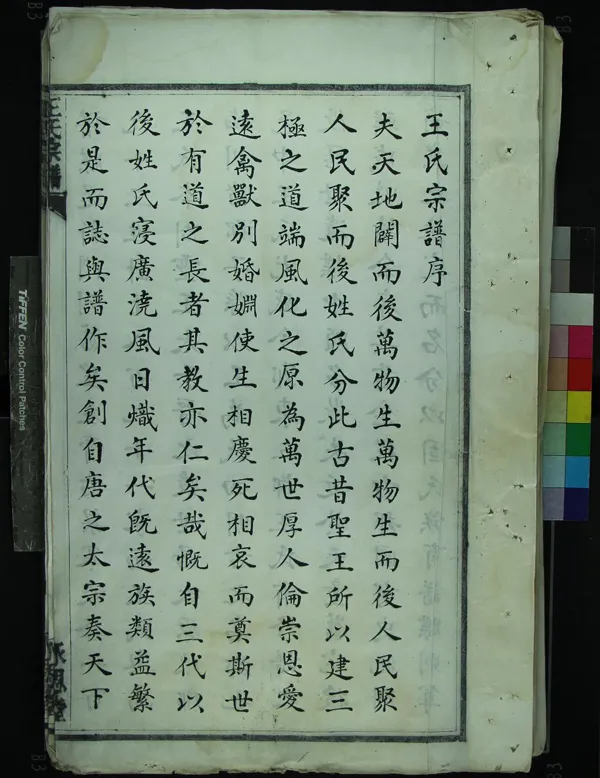 王氏宗譜序
夫天地闢而後萬物生萬物生而後人民聚
人民聚而後姓氏分此古昔聖王所以建三
極之道端風化之原為萬世厚人倫崇恩愛
遠禽獸別婚婣使生相慶死相哀而奠斯世
於有道之長者其教亦仁矣哉慨自三代以
後姓氏寖廣澆風日熾年代旣遠族類益繁
於是而誌與譜作矣創自唐之太宗奏天下
王氏宗譜
TIFFEN Color Control Patches
B3
B3
B3
B3